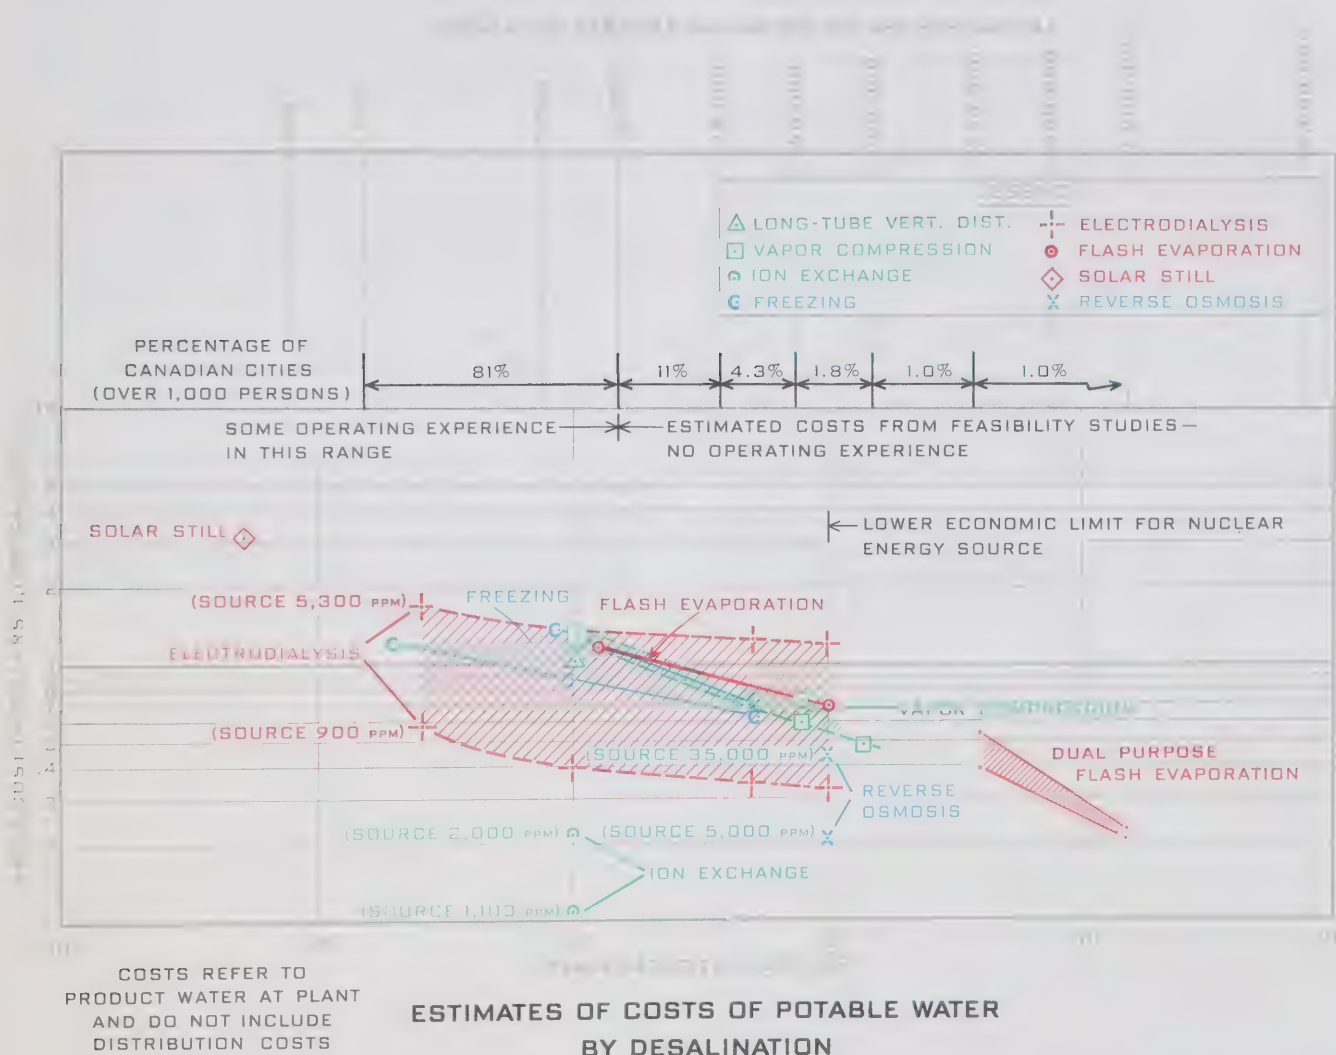 △ LONG-TUBE VERT. DIST.
VAPOR COMPRESSION
ION EXCHANGE
FREEZING
ELECTRODIALYSIS
FLASH EVAPORATION
SOLAR STILL
REVERSE OSMOSIS
PERCENTAGE OF
CANADIAN CITIES
(OVER 1,000 PERSONS)
81%
11%
4.3%
1.8%
1.0%
1.0%
SOME OPERATING EXPERIENCE
IN THIS RANGE
ESTIMATED COSTS FROM FEASIBILITY STUDIES—
NO OPERATING EXPERIENCE
SOLAR STILL
LOWER ECONOMIC LIMIT FOR NUCLEAR
ENERGY SOURCE
(SOURCE 5,300 PPM)
FREEZING
FLASH EVAPORATION
ELECTRODIALYSIS
(SOURCE 900 PPM)
VAPOR
(SOURCE 35,000 PPM)
DUAL PURPOSE
FLASH EVAPORATION
.4
REVERSE
OSMOSIS
(SOURCE 2,000 PPM)
(SOURCE 5,000 PPM)
ION EXCHANGE
(SOURCE PPM)
COSTS REFER TO
PRODUCT WATER AT PLANT
AND DO NOT INCLUDE
DISTRIBUTION COSTS
ESTIMATES OF COSTS OF POTABLE WATER
BY DESALINATION